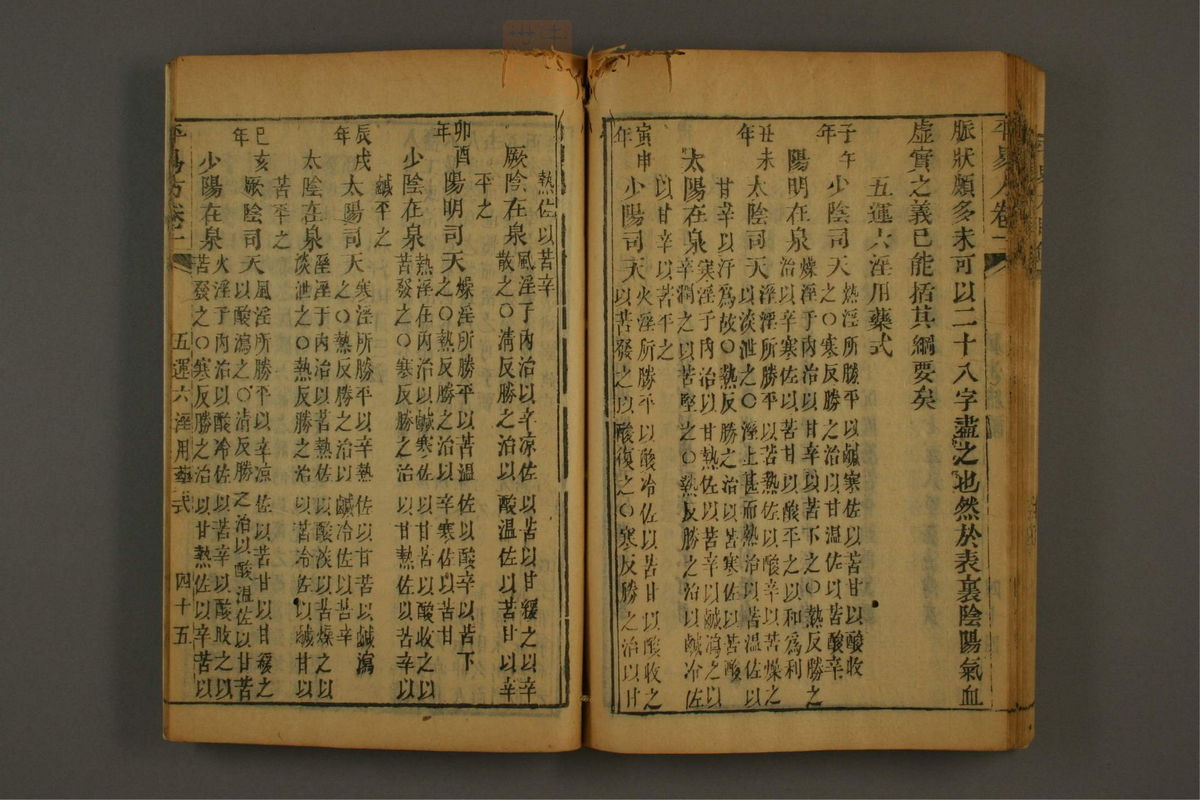 脈狀頗多未可以二十八字盡之也然於表裏陰陽氣血
虛實之義已能括其綱要矣
五運六淫用藥式
子午年
少陰司天
熱淫所勝平以鹹寒佐以苦甘以酸收
之〇寒反勝之治以甘温佐以苦酸辛
陽明在泉
燥淫于內治以甘辛以苦下之〇熱反勝之
治以辛寒佐以苦甘以酸平之以和為利
丑未年
太陰司天
溼淫所勝平以苦熱佐以酸辛以苦燥之
以淡泄之〇溼上甚而熱治以苦温佐以
甘辛以汗為故〇熱反勝之治以苦寒佐以苦酸
太陽在泉
寒淫于內治以甘熱佐以苦辛以鹹瀉之以
辛潤之以苦堅之〇熱反勝之治以鹹冷佐
以甘辛以苦平之
寅申年
少陽司天
火淫所勝平以酸冷佐以苦甘以酸收之
以苦發之以酸復之〇寒反勝之治以甘
熱佐以苦辛
厥陰在泉
風淫于內治以辛凉佐以苦以甘緩之以辛
散之〇清反勝之治以酸温佐以苦甘以辛
平之
卯酉年
陽明司天
燥淫所勝平以苦温佐以酸辛以苦下
之〇熱反勝之治以辛寒佐以苦甘
少陰在泉
熱淫在內治以鹹寒佐以甘苦以酸收之以
苦發之〇寒反勝之治以甘熱佐以苦辛以
鹹平之
辰戌年
太陽司天
寒淫所勝平以辛熱佐以甘苦以鹹瀉
之〇熱反勝之治以鹹冷佐以苦辛
太陰在泉
溼淫于內治以苦熱佐以酸淡以苦燥之以
淡泄之〇熱反勝之治以苦冷佐以鹹甘以
苦平之
巳亥年
厥陰司天
風淫所勝平以辛凉佐以苦甘以甘緩之
以酸瀉之〇清反勝之治以酸温佐以甘苦
少陽在泉
火淫于內治以鹹冷佐以苦辛以酸收之以
苦發之〇寒反勝之治以甘熱佐以辛苦以
五運六淫用藥式 四十五